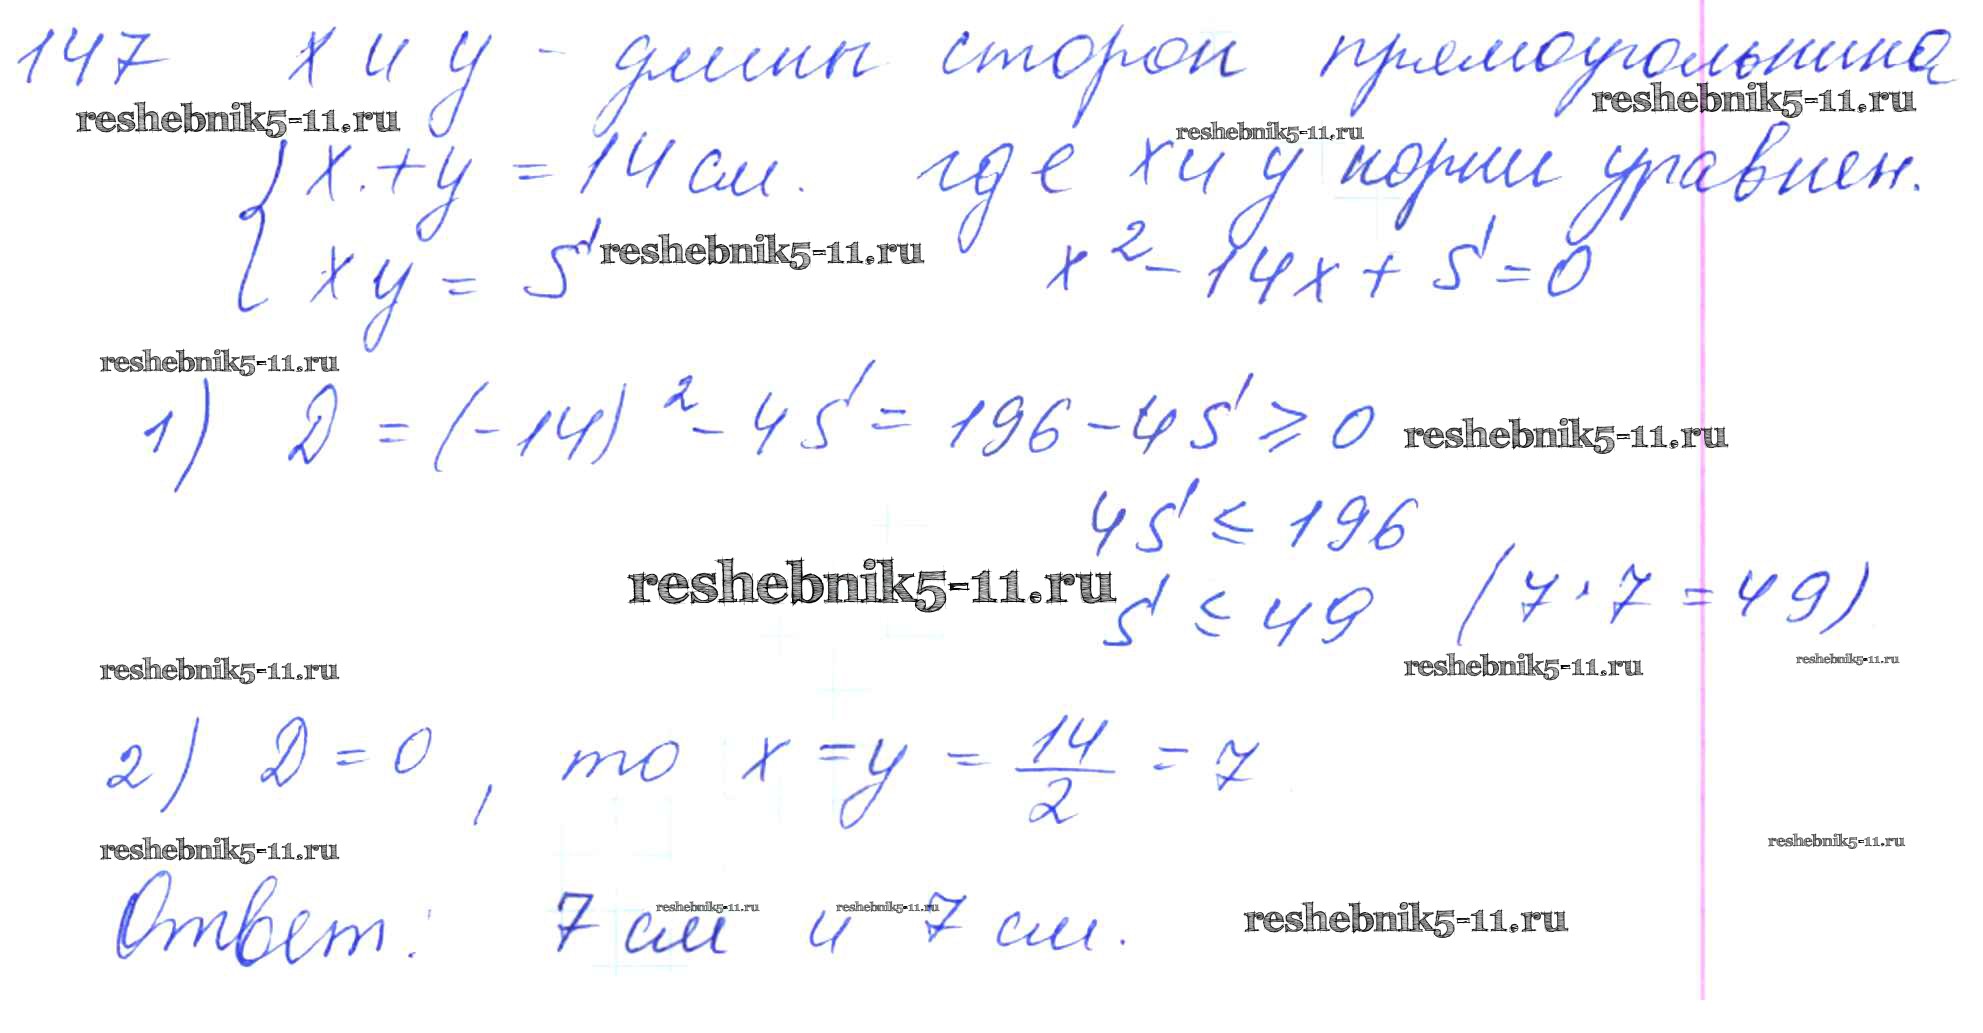 147 х и у - длины сторон прямоугольника
reshebnik5-11.ru reshebnik5-11.ru
reshebnik5-11.ru
{ х + у = 14 см. где х и у корни уравнен.
ху = S reshebnik5-11.ru x² - 14x + S = 0
reshebnik5-11.ru
1) D = (-14)² - 4S = 196 - 4S ≥ 0 reshebnik5-11.ru
4S ≤ 196
reshebnik5-11.ru S ≤ 49 (7 · 7 = 49)
reshebnik5-11.ru reshebnik5-11.ru reshebnik5-11.ru
2) D = 0, то x = y = 14/2 = 7
reshebnik5-11.ru reshebnik5-11.ru
reshebnik5-11.ru reshebnik5-11.ru
Ответ: 7 см и 7 см. reshebnik5-11.ru